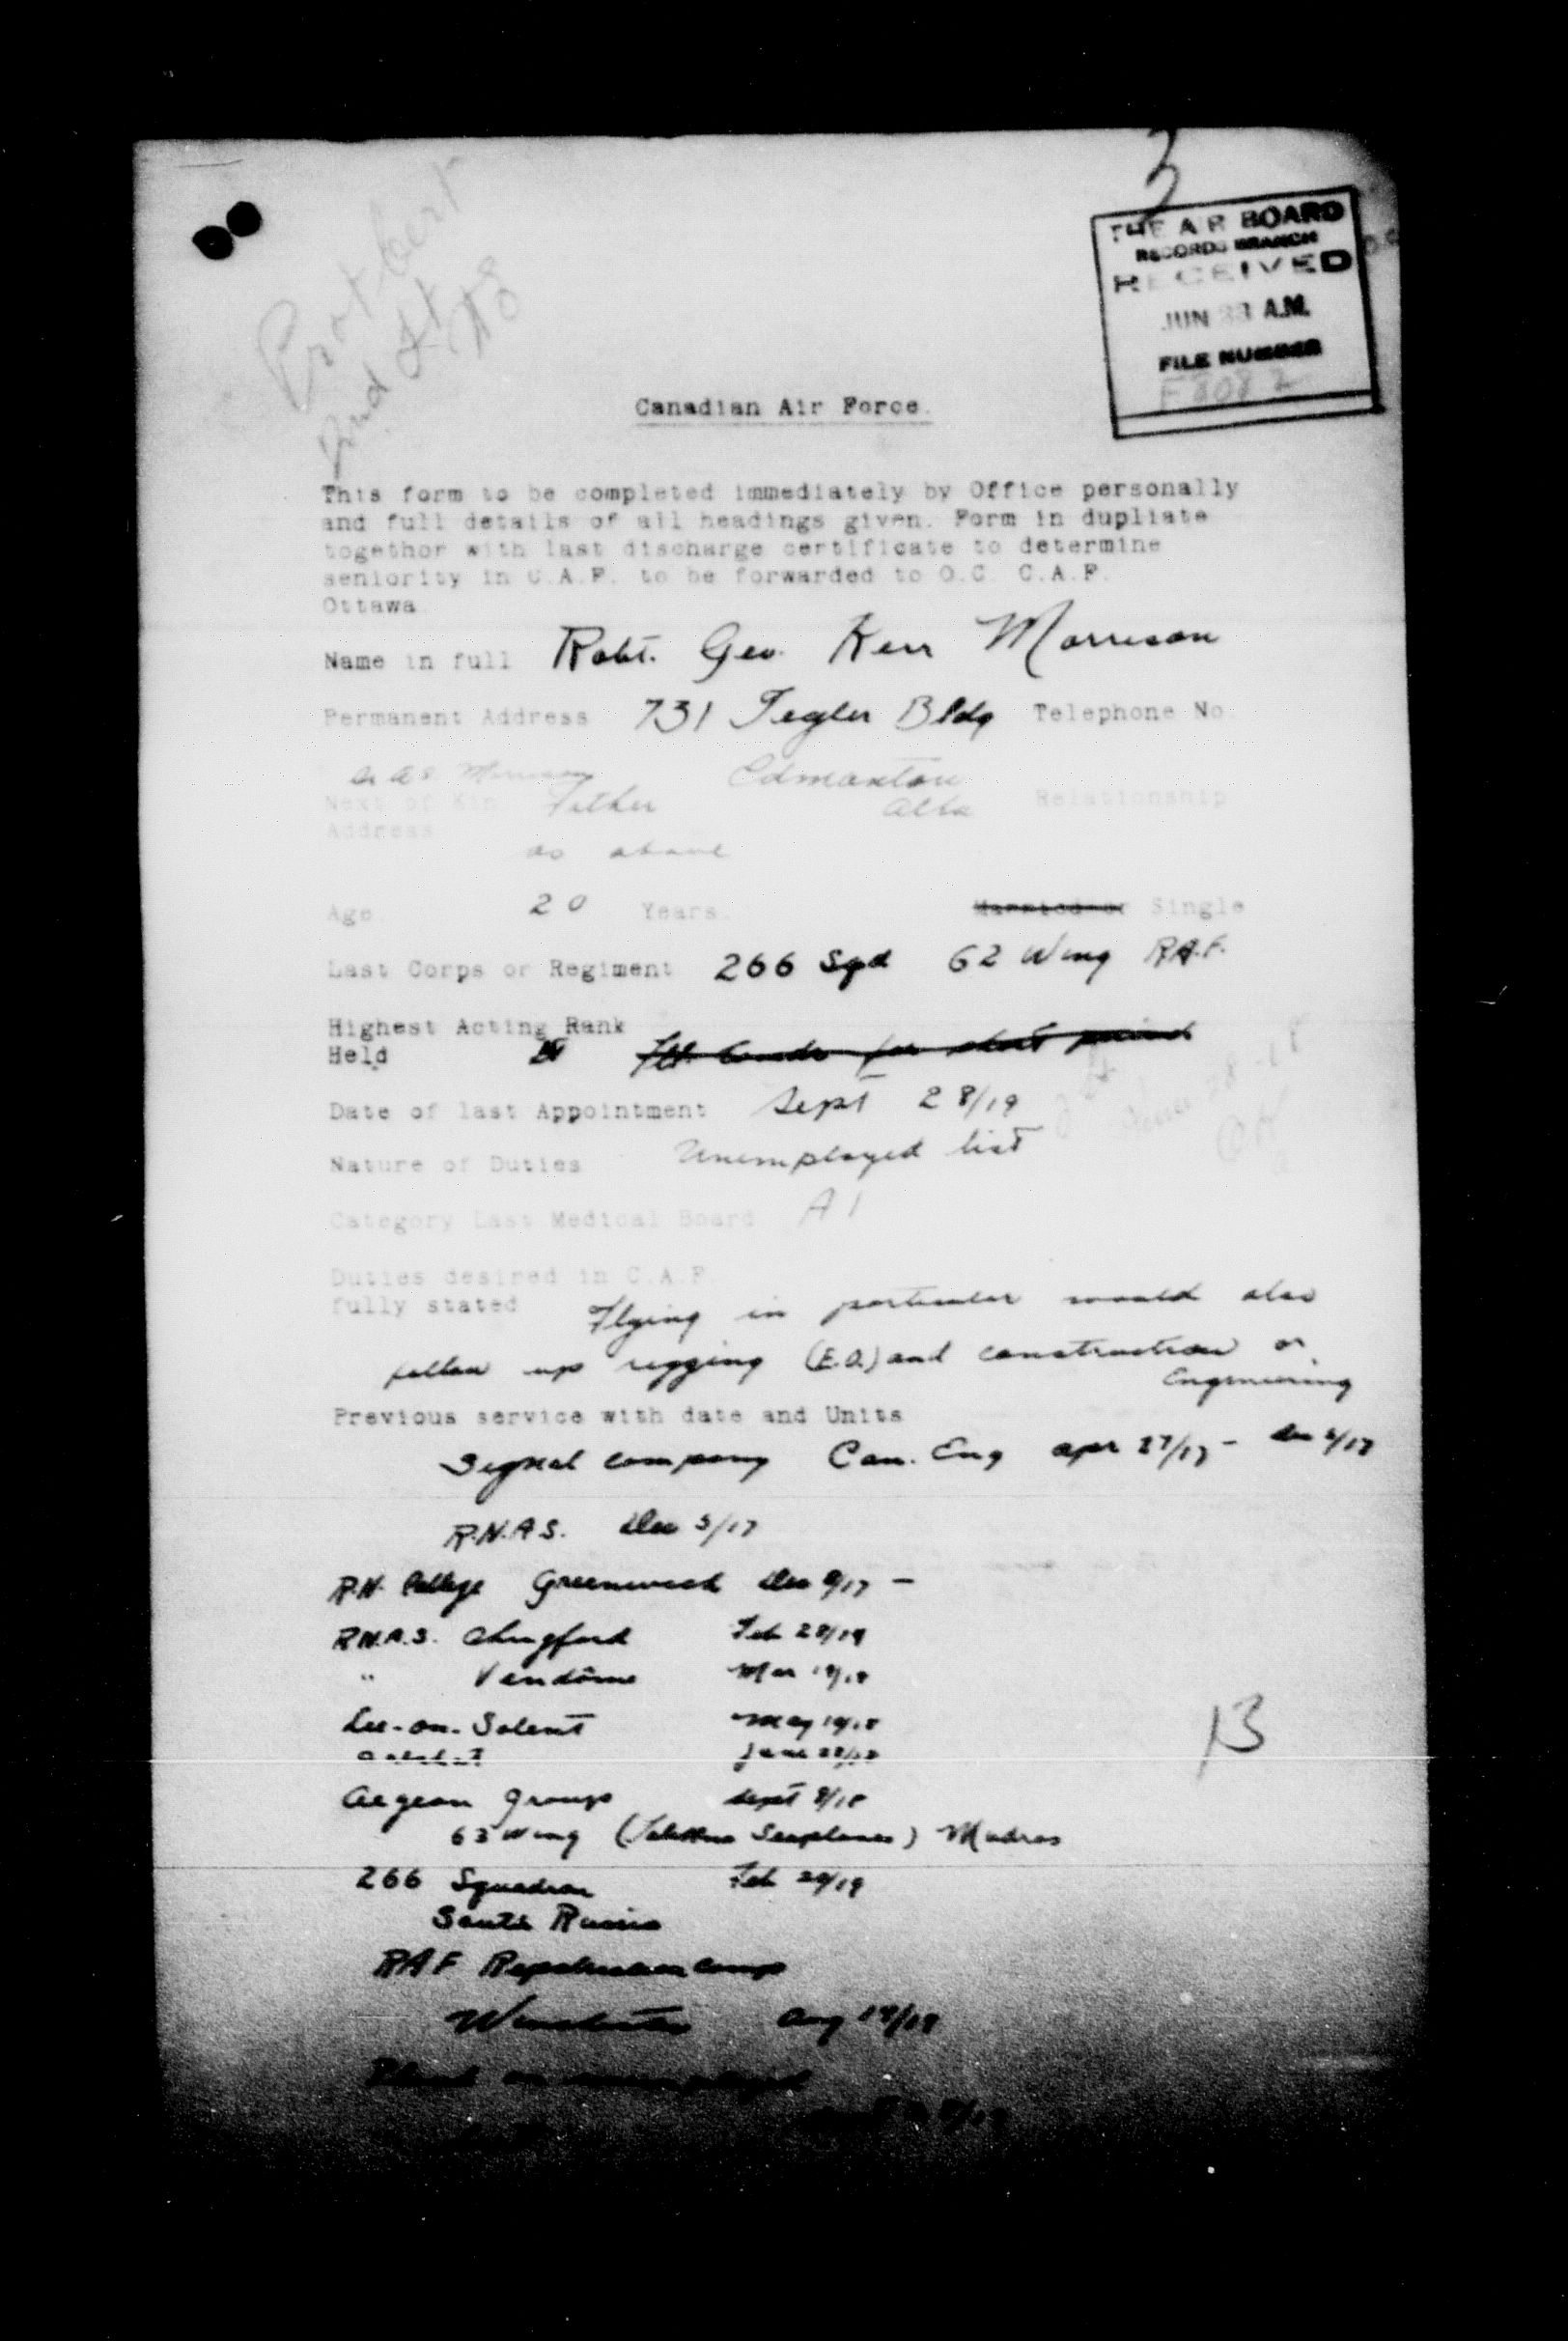 3
THE AIR BOARD
RECORDS BRANCH
RECEIVED
JUN A.M.
FILE NUMBER
2nd Lt
Canadian Air Force.
This form to be completed immediately by Office personally
and full details of all headings given. Form in dupliate
together with last discharge certificate to determine
seniority in C.A.F. to be forwarded to O.C. C.A.F.
Ottawa
Name in full Robt. Geo. Kerr Morrison
Permanent Address 731 Tegler Bldg Telephone No.
Morrison Edmonton
Next of Kin Father Alta Relationship
Address
as above
Age 20 Years. Married or Single
Last Corps or Regiment 266 Sqd 62 Wing R.A.F.
Highest Acting Rank
Held for short period
Date of last Appointment Sept 28/19
Nature of Duties Unemployed list
Category Last Medical Board A1
Duties desired in C.A.F.
fully stated Flying in particular would also
follow up rigging (E.O.) and construction or
Engineering
Previous service with date and Units
Signal Company Can. Eng Apr 27/17 - Dec 5/17
R.N.A.S. Dec 5/17
R.N. College Greenwich Dec 9/17 -
R.N.A.S. Chingford Feb 28/19
" Vendôme Mar 18/18
Lee-on-Solent May 19/18
Calshot June 28/18
Aegean Group Sept 8/18
63 Wing ( Seaplanes) Mudros
266 Squadron Feb 20/19
South Russia
RAF Repatriation Camp
Winchester Aug 19/19
Placed on unemployed
13